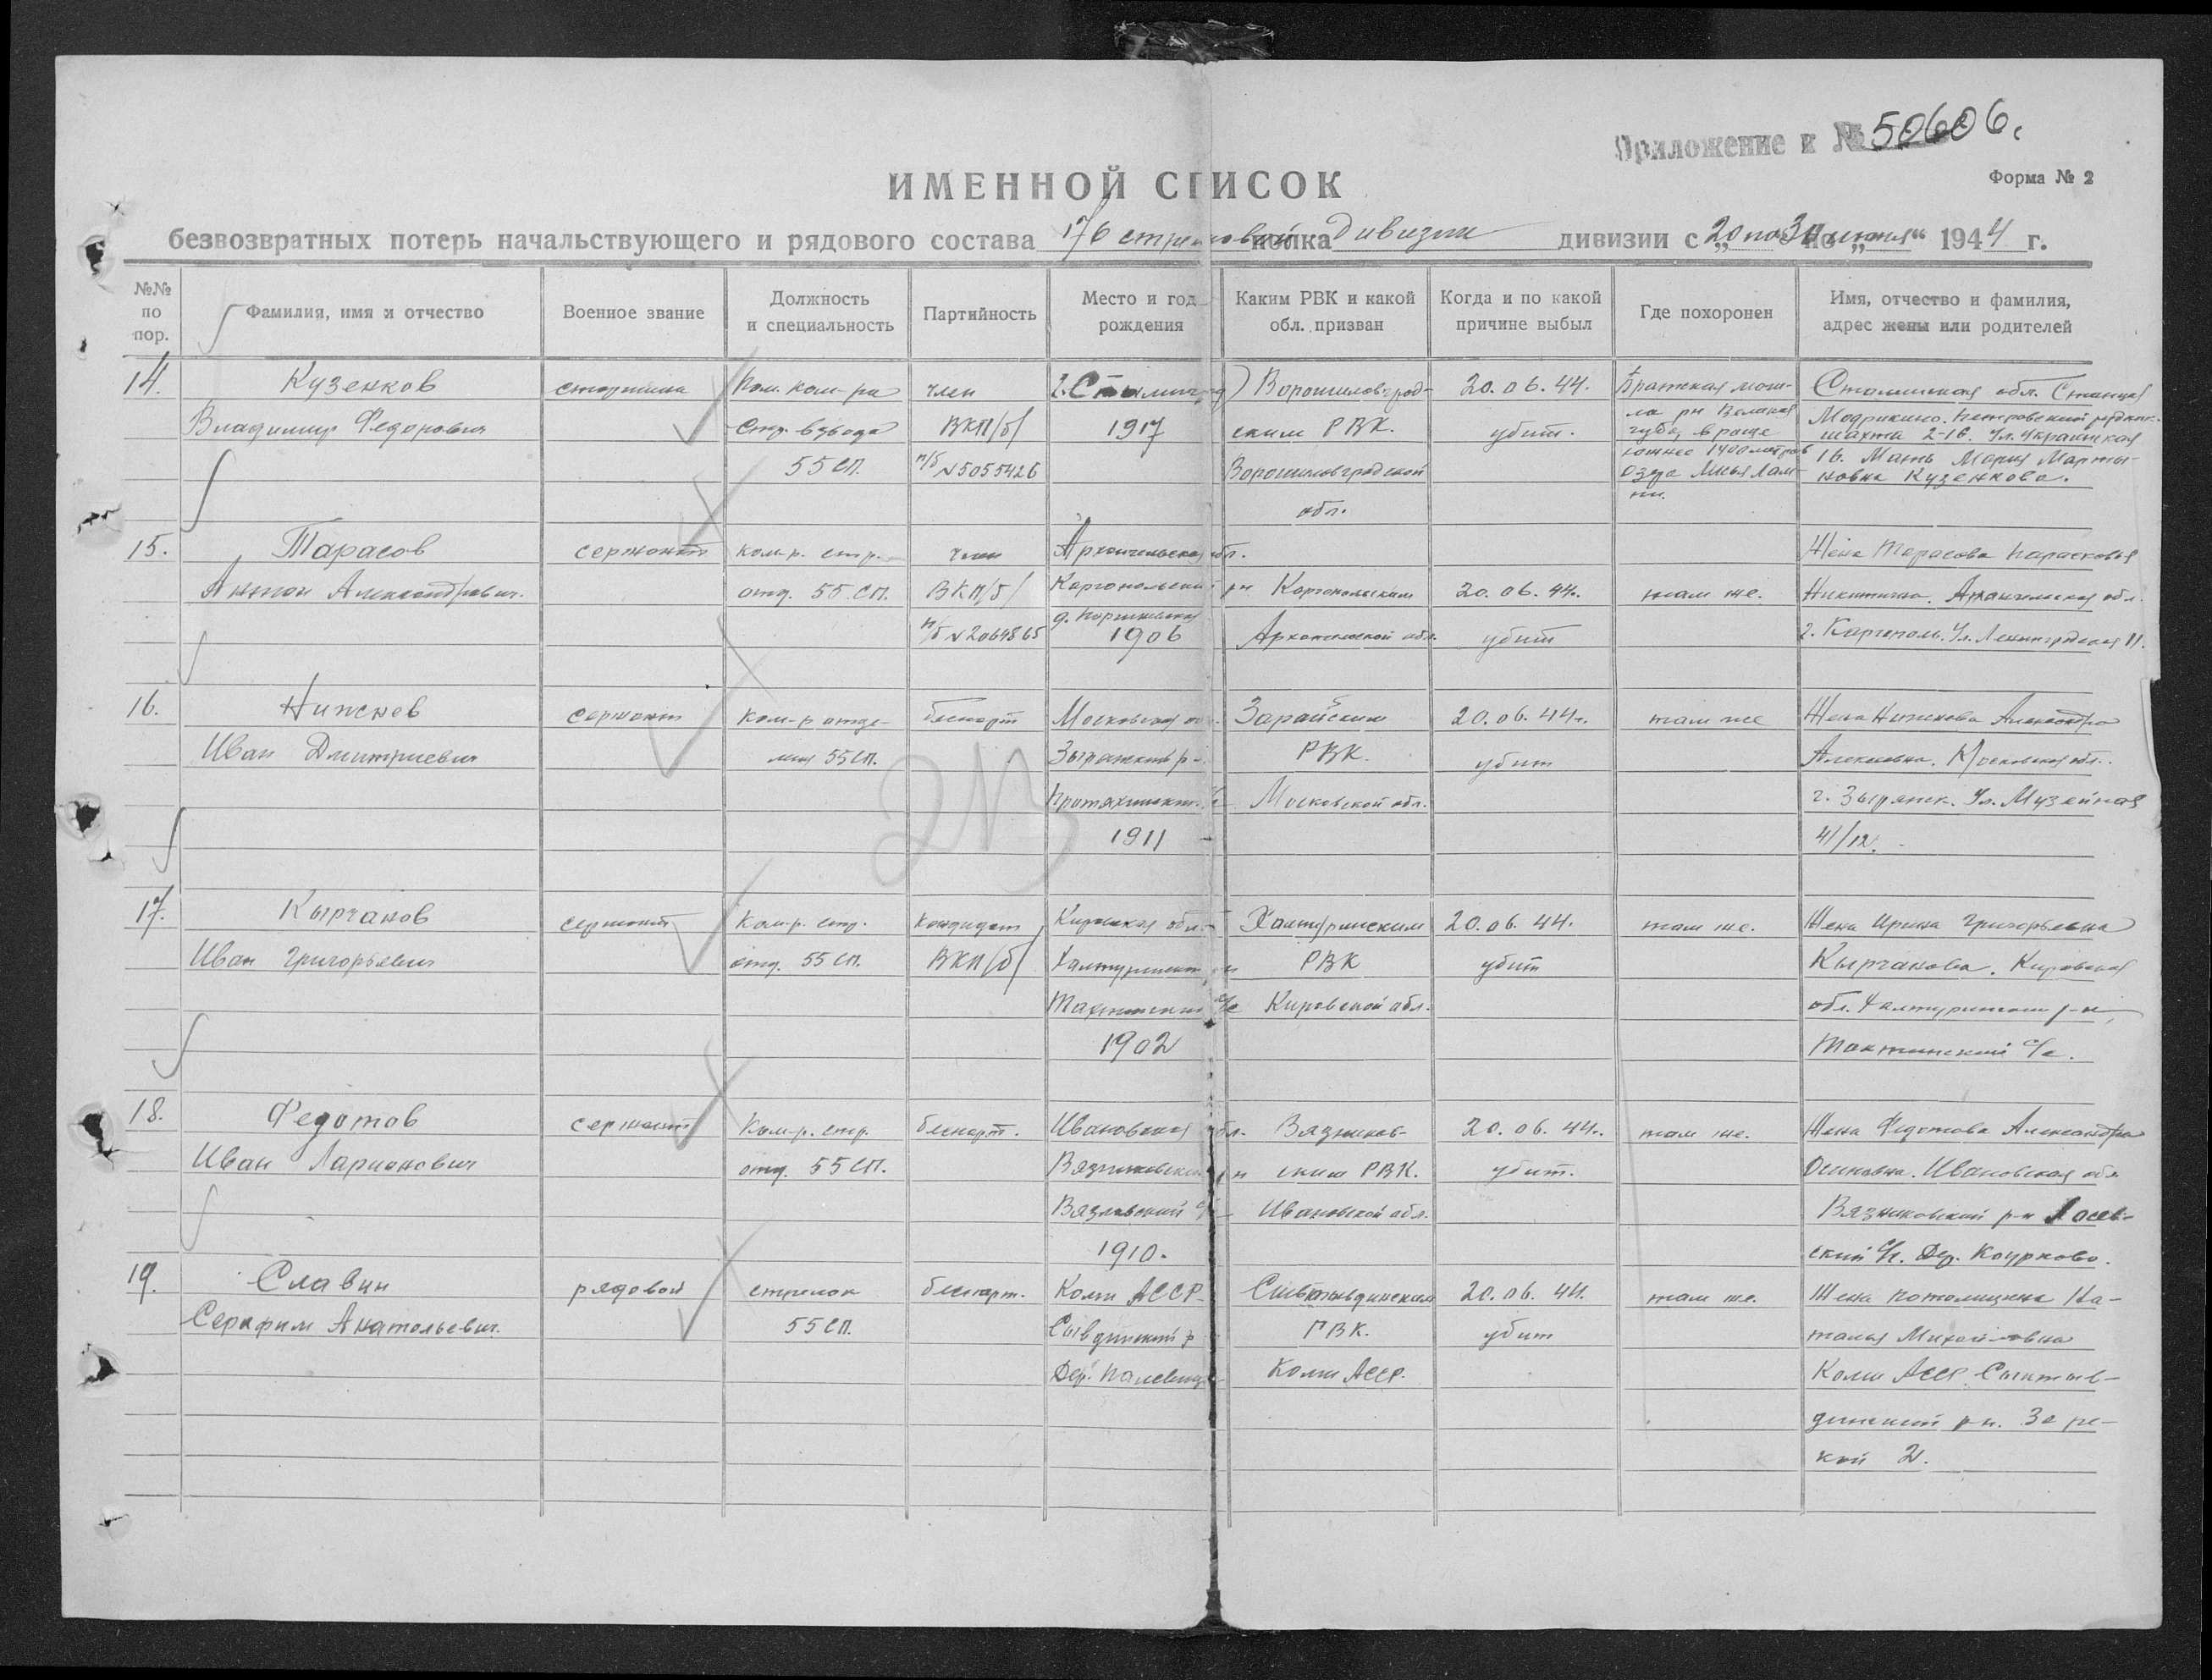 Приложение к № 50606с
ИМЕННОЙ СПИСОК
Форма № 2
безвозвратных потерь начальствующего и рядового состава 176 стрелковой полка дивизии дивизии с „20 по 30 июня“ 1944 г.
№№ по пор.
Фамилия, имя и отчество
Военное звание
Должность и специальность
Партийность
Место и год рождения
Каким РВК и какой обл. призван
Когда и по какой причине выбыл
Где похоронен
Имя, отчество и фамилия, адрес жены или родителей
14. Кузенков старшина Пом. ком-ра член Ворошиловград- 20.06.44. Братская моги- Сталинская обл. Станция
Владимир Федорович Стр. взвода ВКП/б/ 1917 ским РВК. убит. ла рн Великая
губа, в роще шахта 2-16. Ул. Украинская
55 СП. п/б N5055426 Ворошиловградской южнее 1400 метров 16. Мать Мария Марты-
обл. озера новна Кузенкова.
15. Тарасов сержант ком-р. стр. член Архангельская обл. Жена Тарасова Парасковья
Антон Александрович. отд. 55 СП. ВКП/б/ Каргопольский рн Каргопольским 20.06.44. там же. Никитична. Архангельская обл.
п/б N2064865 1906 Архангельской обл. убит г. Каргополь. Ул. Ленинградская 11.
16. Нижнев сержант ком-р отде- беспарт Московская Зарайским 20.06.44г. там же Жена Нижнева Александра
Иван Дмитриевич 55 СП. РВК. убит Алексеевна. Московская обл.
Московской обл. Ул. Музейная
1911 41/12.
17. Кырчанов сержант Ком-р. стр. Кандидат Кировская обл. Халтуринским 20.06.44. там же. Жена Ирина Григорьевна
Иван Григорьевич отд. 55 СП. ВКП/б/ Халтуринский рн РВК убит Кырчанова. Кировская
с/с Кировской обл. обл. Халтуринский р-н,
1902 с/с.
18. Федотов сержант Ком-р. стр. беспарт. Ивановская обл. Вязников- 20.06.44г. там же. Жена Федотова Александра
Иван Ларионович отд. 55 СП. Вязниковский рн ским РВК. убит. Осиповна. Ивановская обл
Ивановской обл. Вязниковский р-н Лосев-
1910. ский с/с. Дер.
19. Славин рядовой стрелок беспарт. Коми АССР 20.06.44. там же. Жена На-
Серафим Анатольевич. 55 СП. РВК. убит талья Михайловна
Дер. Коми АССР. Коми АССР Сыктыв-
динский р-н. За ре-
кой 2.